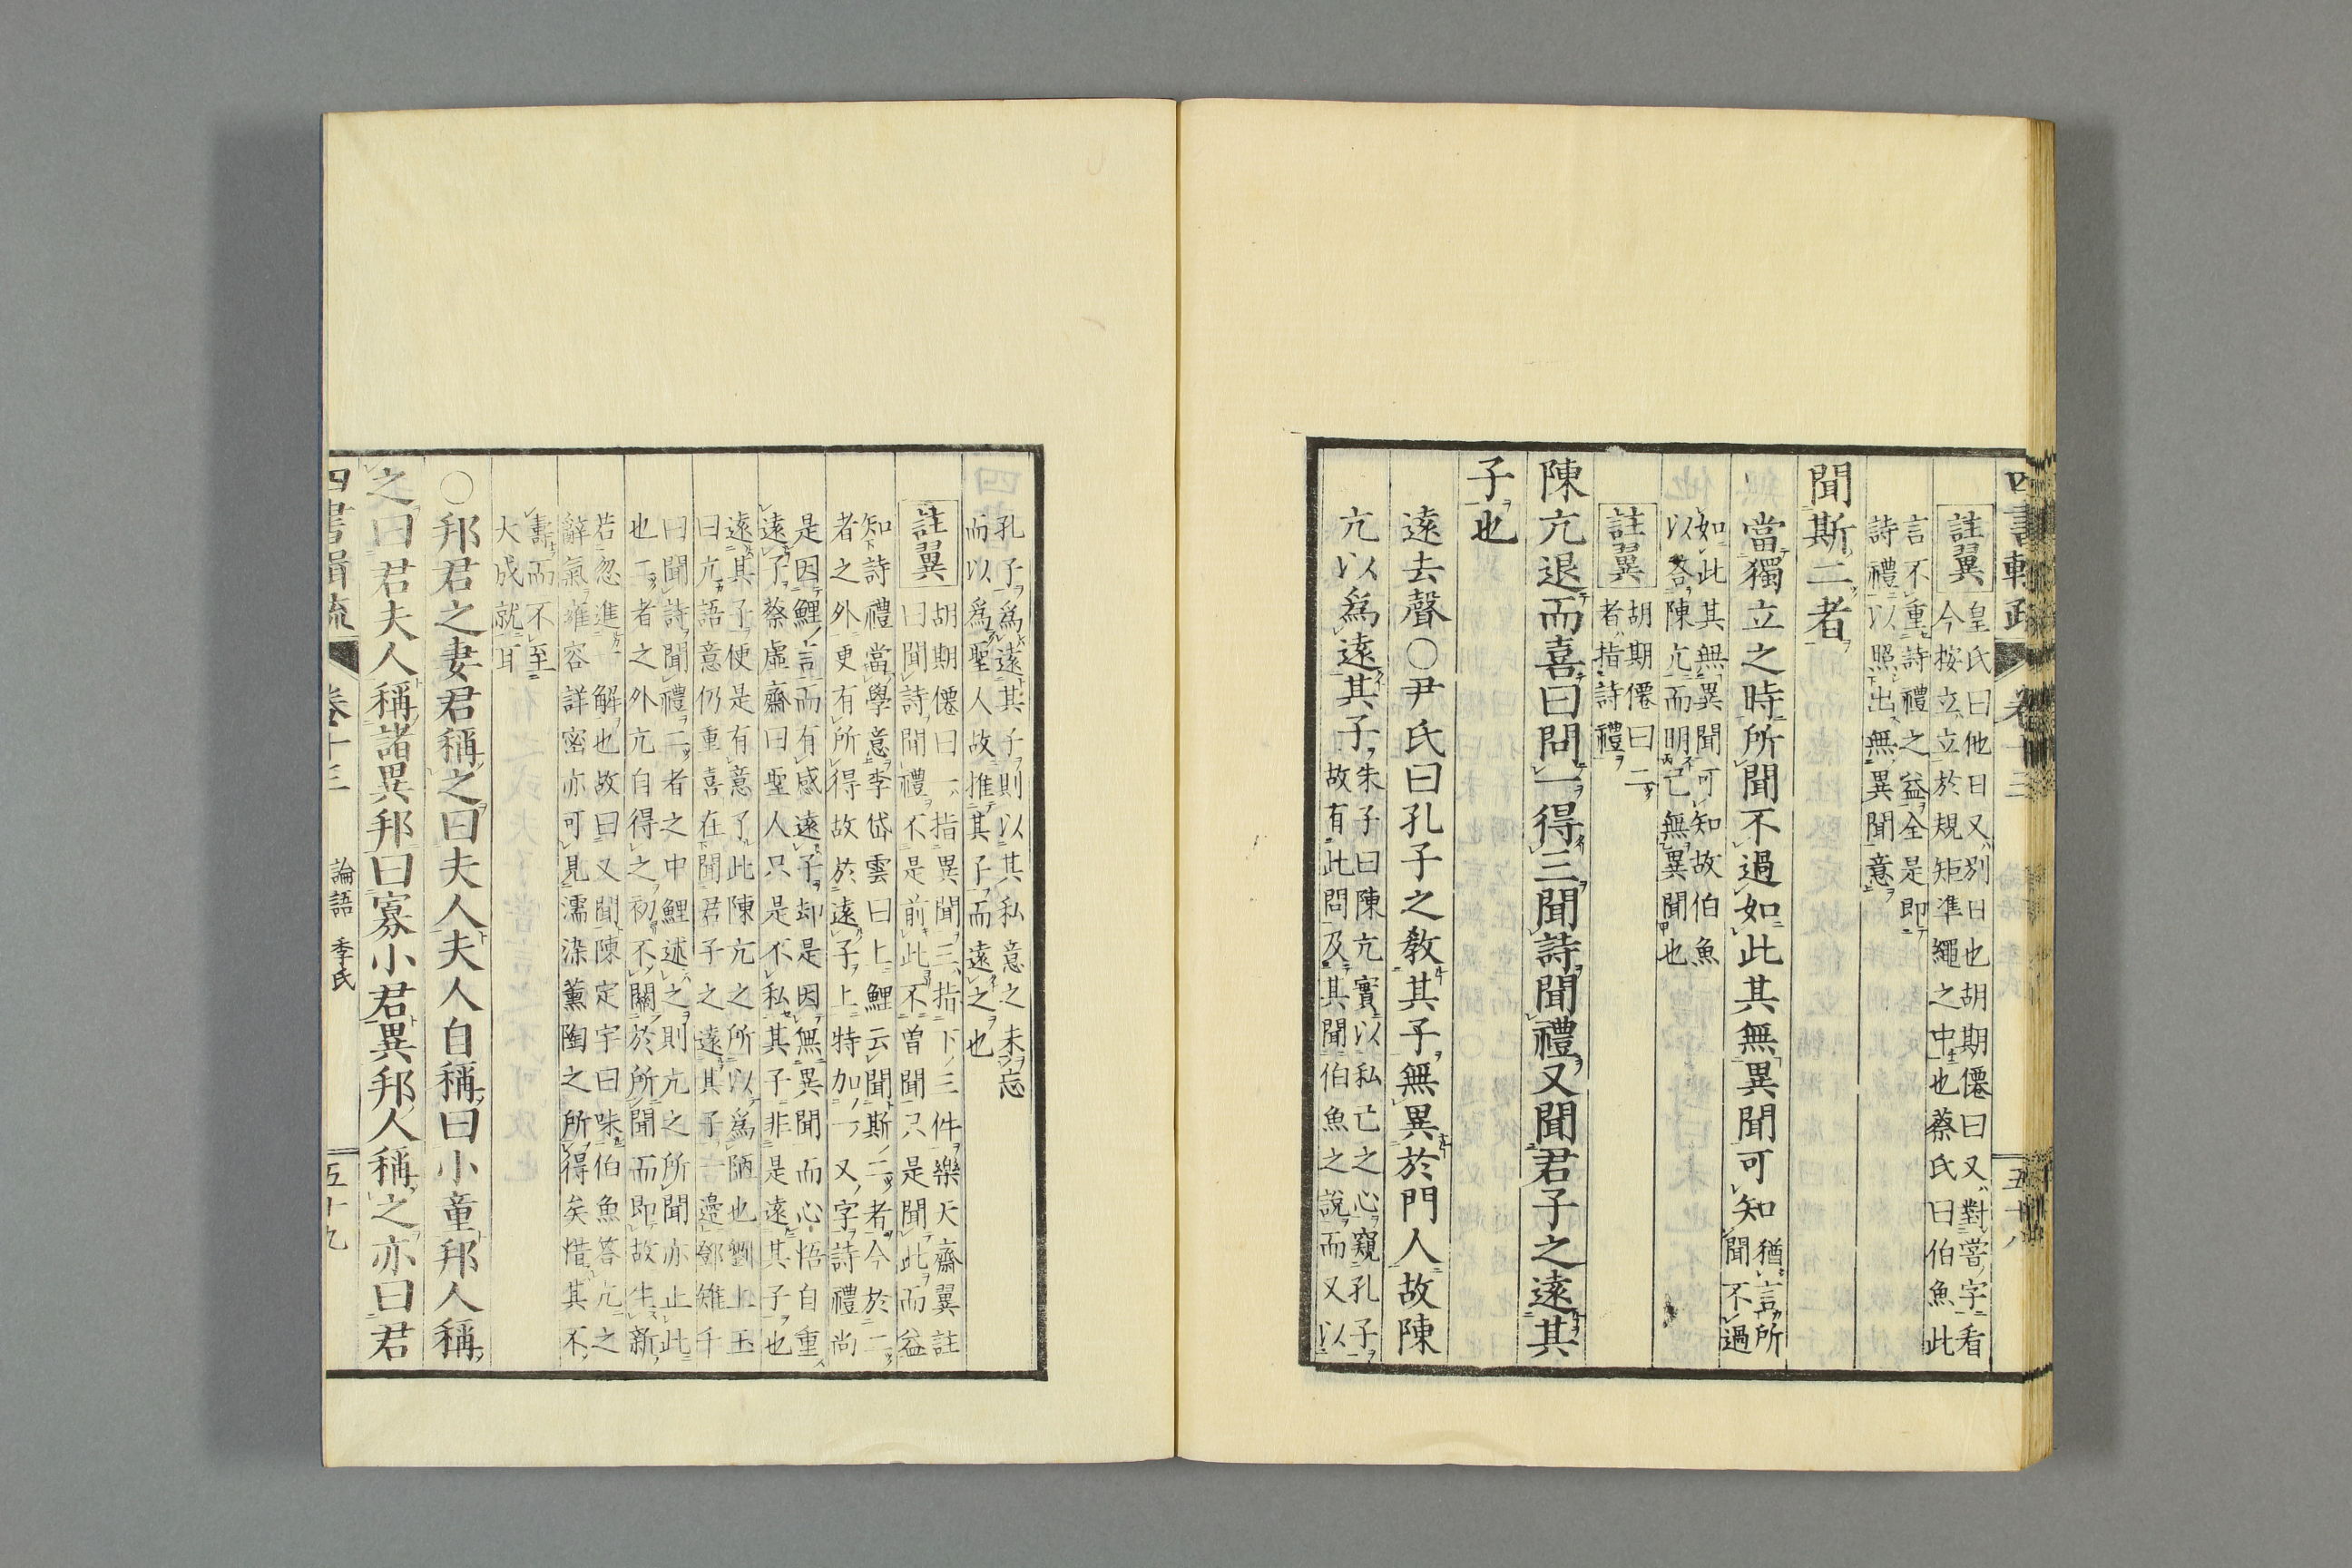 四書輯疏 卷十三 五十八
註翼 皇氏曰他日又別日也胡期僊曰又對嘗字看
今按立立於規矩準繩之中也蔡氏曰伯魚此
言不重詩禮之益全是即
詩禮以照出無異聞意
聞斯二者
當獨立之時所聞不過如此其無異聞可知 猶言所
聞不過
如此其無異聞可知故伯魚
以答陳亢而明己無異聞也
註翼 胡期僊曰二
者指詩禮
陳亢退而喜曰問一得三聞詩聞禮又聞君子之遠其
子也
遠去聲○尹氏曰孔子之敎其子無異於門人故陳
亢以爲遠其子 朱子曰陳亢實以私己之心窺孔子
故有此問及其聞伯魚之說而又以
孔子爲遠其子則以其私意之未忘
而以爲聖人故推其子而遠之也
註翼 胡期僊曰一指異聞三指下三件樂天齋翼註
曰聞詩聞禮不是前此不曾聞只是聞此而益
知詩禮當學意李岱雲曰上鯉云聞斯二者今於二
者之外更有所得故於遠子上特加一又字詩禮尚
是因鯉言而有感遠子却是因無異聞而心悟自重
遠了蔡虛齋曰聖人只是不私其子非是遠其子也
遠其子便是有意了此陳亢之所以爲陋也劉上玉
曰亢語意仍重喜在聞君子之遠其子一邊鄧雉千
曰聞詩聞禮二者之中鯉述之則亢之所聞亦止此
也二者之外亢自得之初不關於所聞而即故生新
若忽進一解也故曰又聞陳定宇曰味伯魚答亢之
辭氣雍容詳密亦可見濡染薰陶之所得矣惜其不
壽而不至
大成就耳
○邦君之妻君稱之曰夫人夫人自稱曰小童邦人稱
之曰君夫人稱諸異邦曰寡小君異邦人稱之亦曰君
四書輯疏 卷十三 論語 季氏 五十九